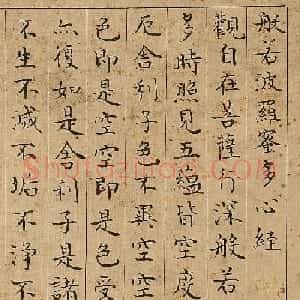 般若波羅蜜多心經
觀自在菩薩行深般若
多時照見五蘊皆空度
厄舍利子色不異空空
色即是空空即是色受
亦復如是舍利子是諸
不生不滅不垢不淨不